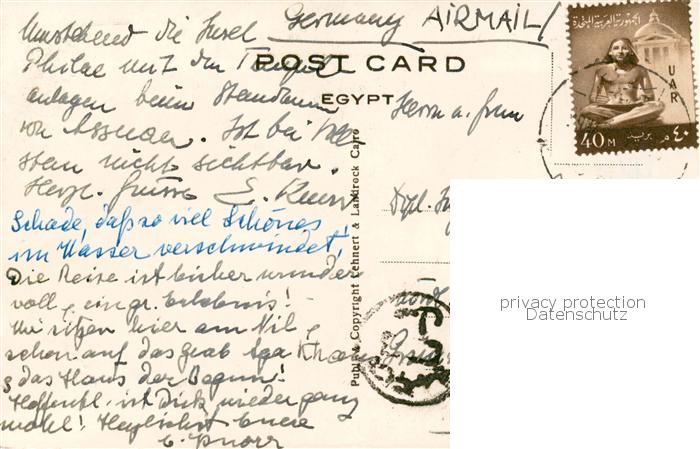 Germany AIRMAIL/
Umstehend die Insel
Philae mit den Tempel
POST CARD
anlagen beim Staudamm
EGYPT
Herrn u. Frau
von Assuan. Ist bei
sehen nicht sichtbar.
Herzl. Grüsse E.
Dipl.
Schade, daß so viel Schönes
im Wasser verschwindet!
Die Reise ist bisher wunder
voll, ein gr. Erlebnis!
Wir sitzen hier am Nil,
sehen auf das Grab Aga Khans
& das Haus der Begum!
Hoffentl. ist Dick wieder ganz
wohl! Herzlichst Eure
E. Knorr
Publ. & Copyright Lehnert & Landrock Cairo
الجمهورية العربية المتحدة
UAR
40 M بريد ٤٠ م
privacy protection
Datenschutz